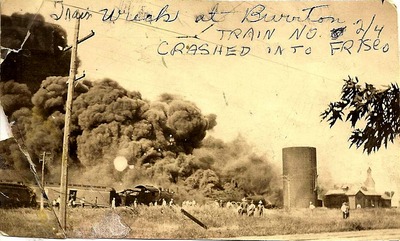 Train Wreck at Burrton
TRAIN NO. 2/4
CRASHED INTO FRISCO